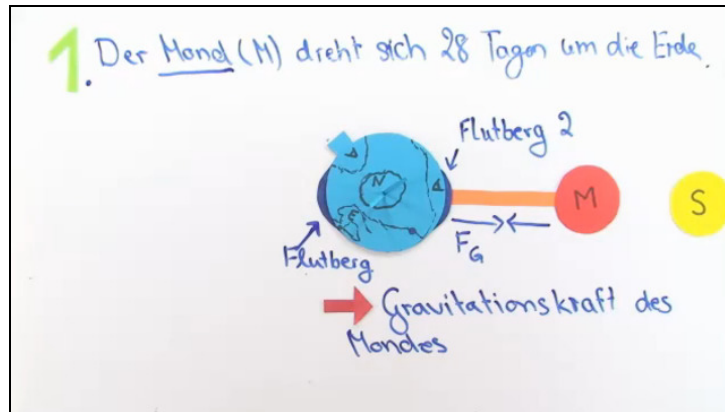 1. Der Mond (M) dreht sich 28 Tagen um die Erde.
Flutberg 2
N
M
S
Flutberg
F_G
Gravitationskraft des
Mondes